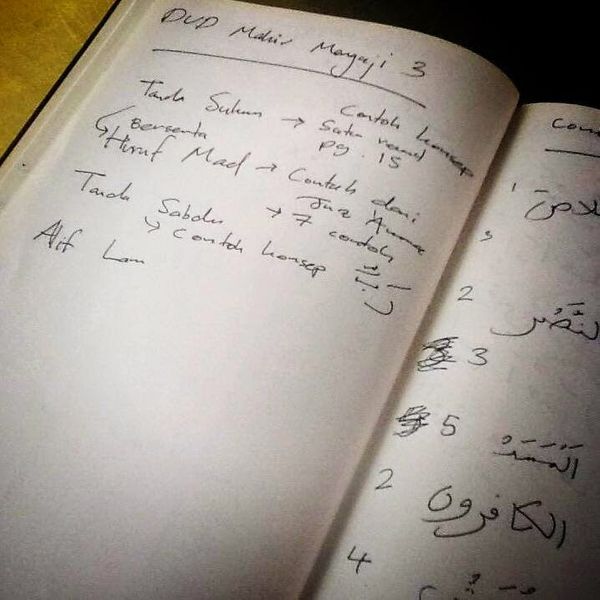 DVD Mahir Mengaji 3
Tanda Sukun → Contoh konsep
Bersenta Satu round
pg. 15
Huruf Mad → Contoh dari
Juz Amma
Tanda Sabdu → 7 contoh
→ Contoh konsep رَبَّ
Alif Lam
Con
1
2
النَّصْر
3
5
الْمَسَد
2
الكافرون
4